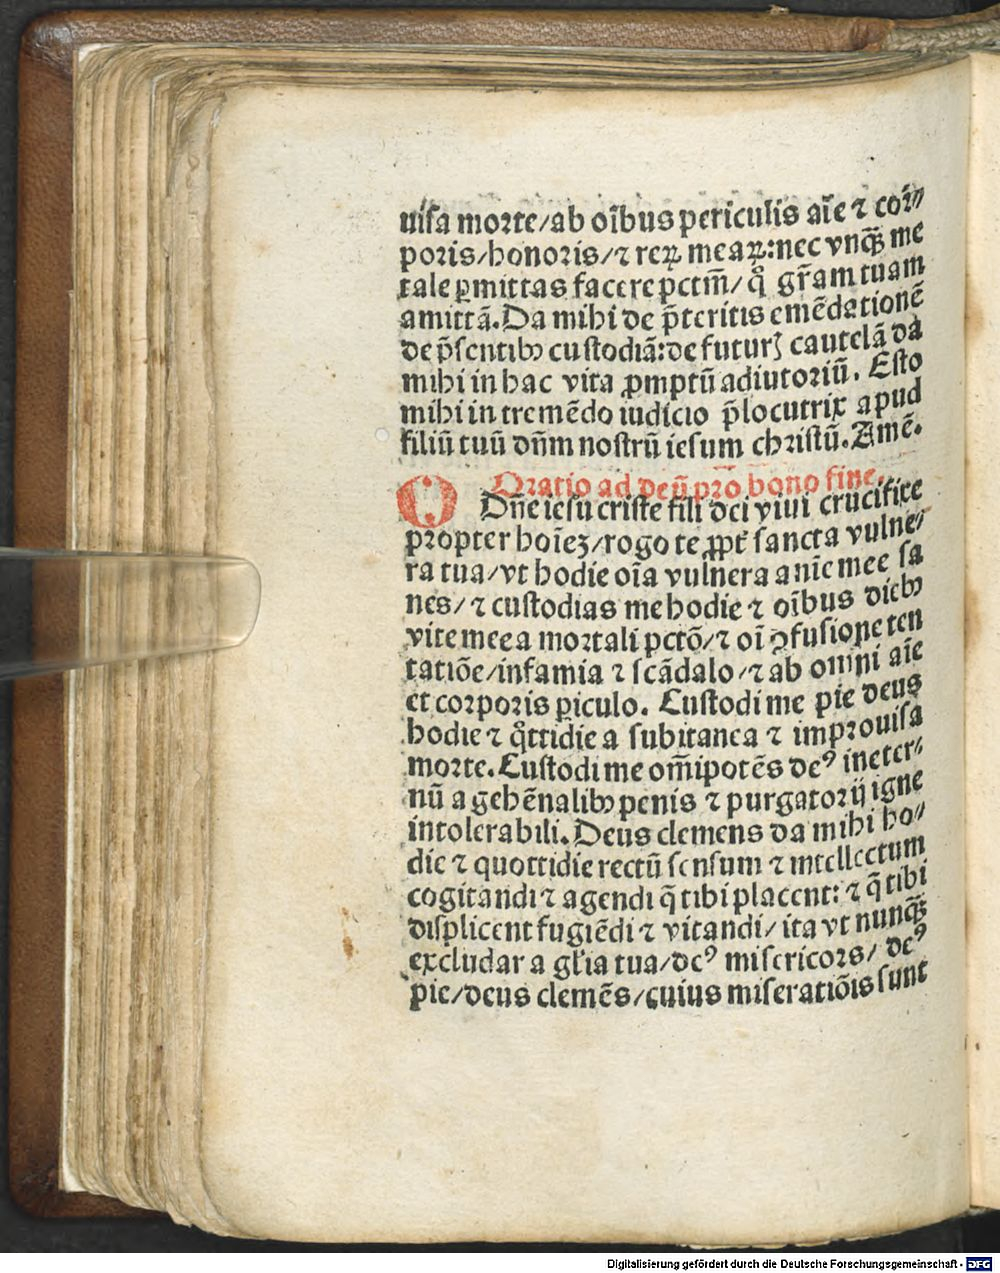 uisa morte/ab oı̄bus periculis aı̄e ⁊ cor⸗
poris/honoris/⁊ reꝝ meaꝝ:nec vnq̄ꝫ me
tale ꝑmittas facere pctm̄/ qͦ gr̄am tuam
amittā.Da mihi de p̄teritis emēdationē
de p̄sentibꝰ custodiā:de futurꝭ cautelā da
mihi in hac vita ꝓmptū adiutoriū. Esto
mihi in tremēdo iudicio p̄locutrix apud
filiū tuū dn̄m nostrū iesum christū.Amē.
Oratio ad deū pro bono fine.
O Dn̄e iesu criste fili dei viui crucifixe
propter hoı̄eꝫ/rogo te ꝓpt̄ sancta vulne⸗
ra tua/vt hodie oı̄a vulnera anı̄e mee sa
nes/ ⁊ custodias me hodie ⁊ oı̄bus diebꝰ
vite mee a mortali pctō/⁊ oı̄ ꝯfusione ten
tatiōe/infamia ⁊ scādalo/⁊ ab omni aı̄e
et corporis ꝑiculo. Custodi me pie deus
hodie ⁊ qͦttidie a subitanea ⁊ improuisa
morte.Custodi me om̄ipotēs deꝰ in eter⸗
nū a gehēnalibꝰ penis ⁊ purgatorij igne
intolerabili.Deus clemens da mihi ho⸗
die ⁊ quottidie rectū sensum ⁊ intellectum
cogitandi ⁊ agendi q̄ tibi placent: ⁊ q̄ tibi
displicent fugiēdi ⁊ vitandi/ ita vt nunq̄ꝫ
excludar a gl̄ia tua/deꝰ misericors/ deꝰ
pie/deus clemēs/cuius miseratiōis sunt
Digitalisierung gefördert durch die Deutsche Forschungsgemeinschaft - DFG